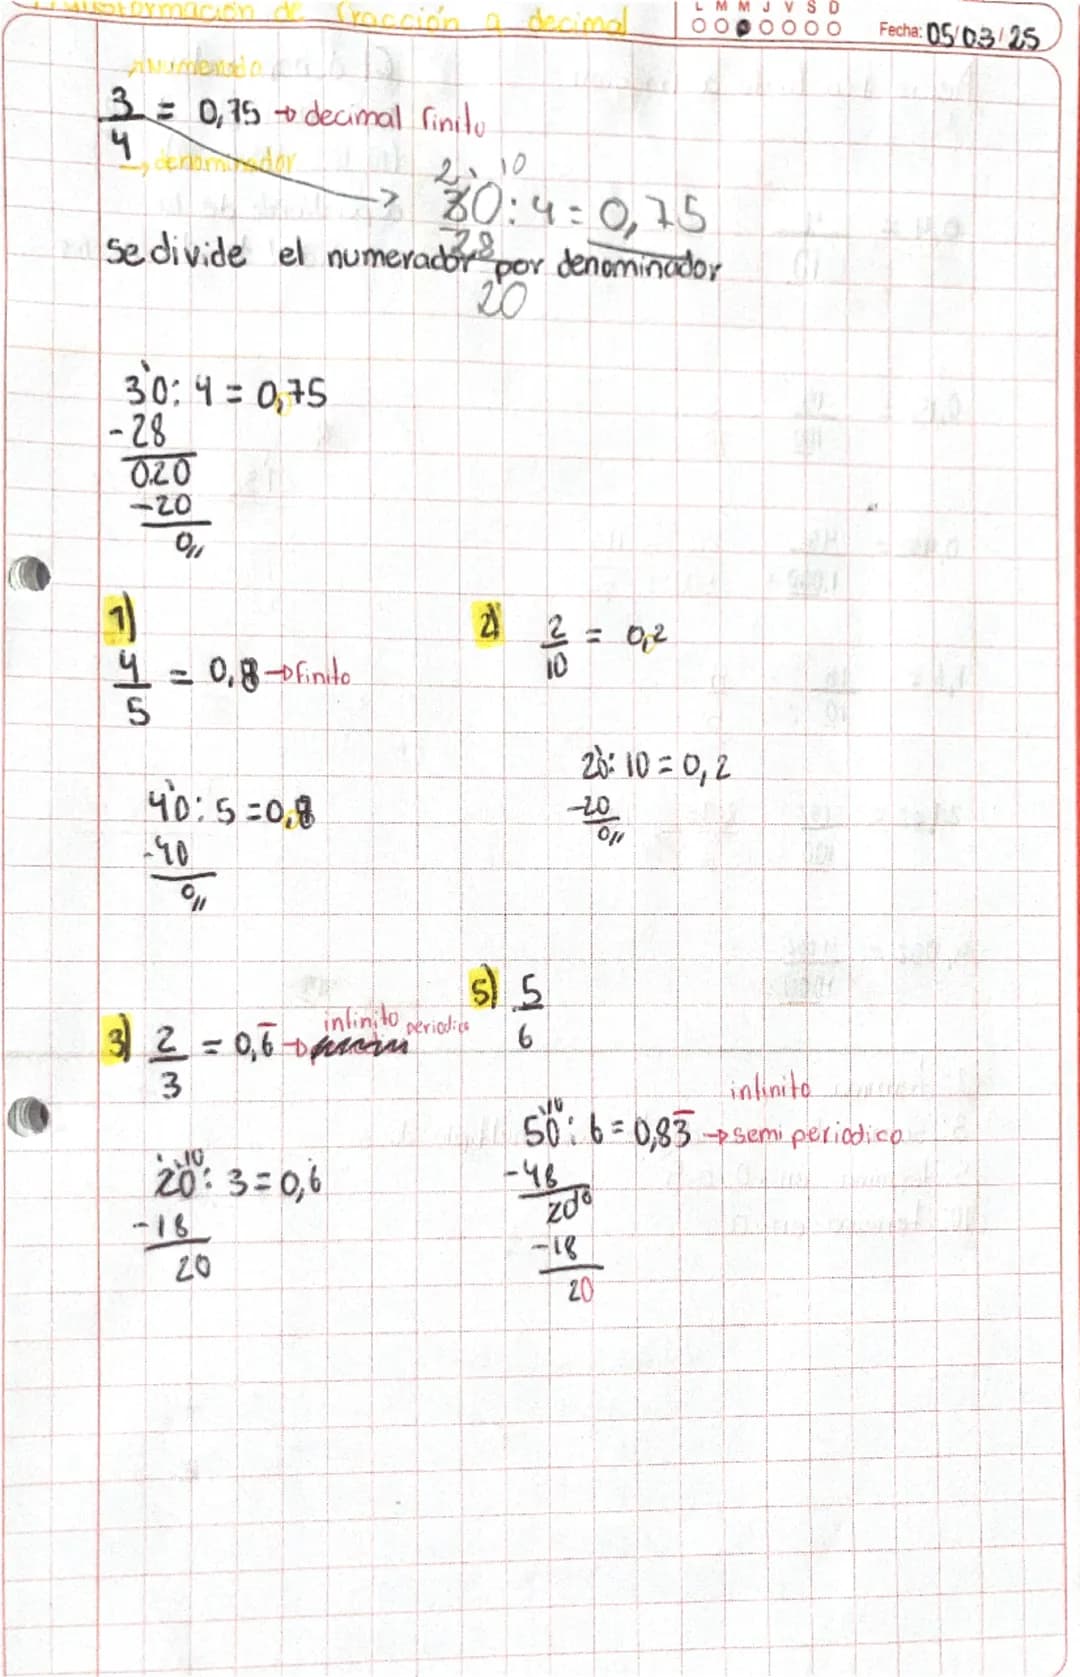 Transformación de fracción a decimal
L M M J V S D
Fecha: 05/03/25
numerado
3/4 = 0,75 → decimal finito
→ denominador
2 10
30:4=0,75
28
se divide el numerador por denominador
20
30:4=0,75
-28
020
-20
0,,
1)
4/5 = 0,8 → finito
40:5=0,8
-40
0,,
2) 2/10 = 0,2
20:10=0,2
-20
0,,
3) 2/3 = 0,6̅ → infinito periodico
10
20:3=0,6
-18
20
5) 5/6
infinito
10
50:6=0,83̅ → semi periodico
-48
20
-18
20